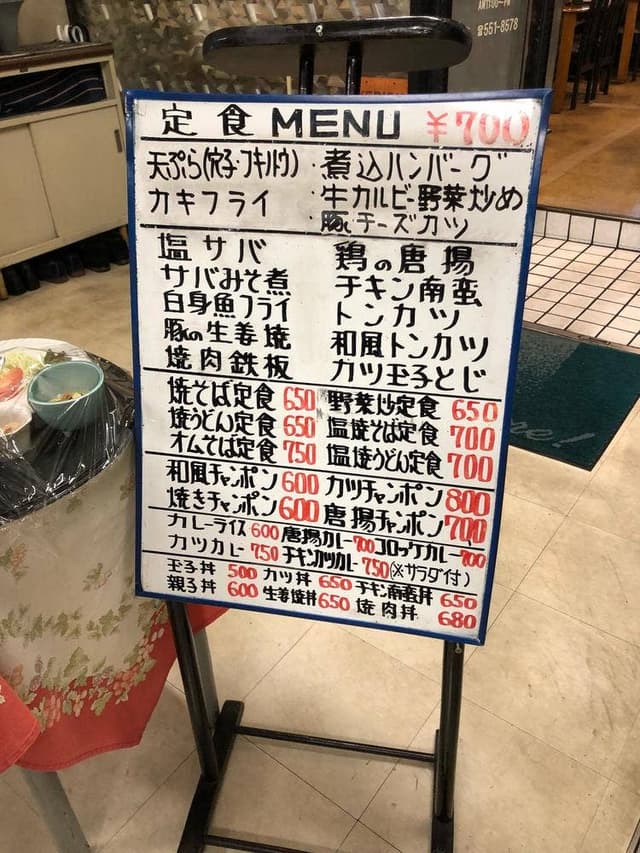 ☎551-8578
定食 MENU ¥700
天ぷら(穴子・フキノトウ)・煮込ハンバーグ
カキフライ ・牛カルビー野菜炒め
・豚チーズカツ
塩サバ 鶏の唐揚
サバみそ煮 チキン南蛮
白身魚フライ トンカツ
豚の生姜焼 和風トンカツ
焼肉鉄板 カツ玉子とじ
焼そば定食 650 野菜炒定食 650
焼うどん定食 650 塩焼そば定食 700
オムそば定食 750 塩焼うどん定食 700
和風チャンポン 600 カツチャンポン 800
焼きチャンポン 600 唐揚チャンポン 700
カレーライス 600 唐揚カレー 700 コロッケカレー 700
カツカレー 750 チキンカツカレー 750 (※サラダ付)
玉子丼 500 カツ丼 650 チキン南蛮丼 650
親子丼 600 生姜焼丼 650 焼肉丼 680